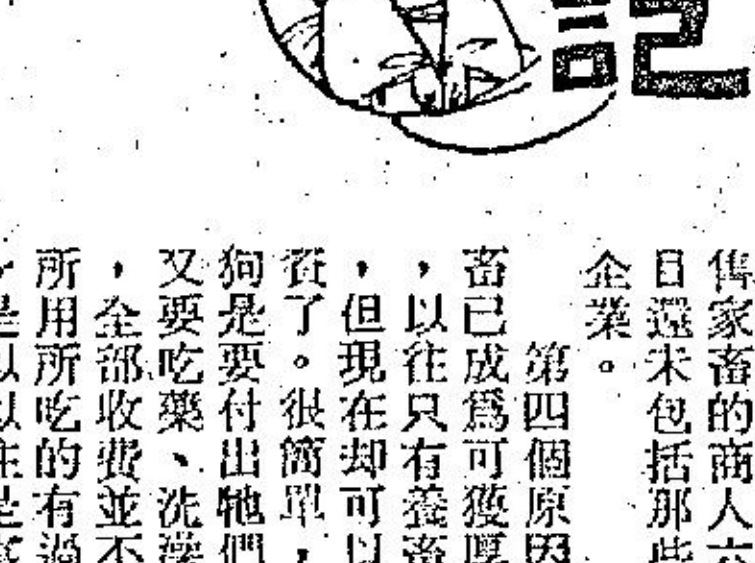 記
售家畜的商人
目還未包括那些
企業。
第四個原因
畜已成爲可獲厚
，以往只有養畜
，但現在却可以
資了。很簡單，
狗是要付出牠們
又要吃藥、洗澡
，全部收費並不
所用所吃的有過
是以以往是